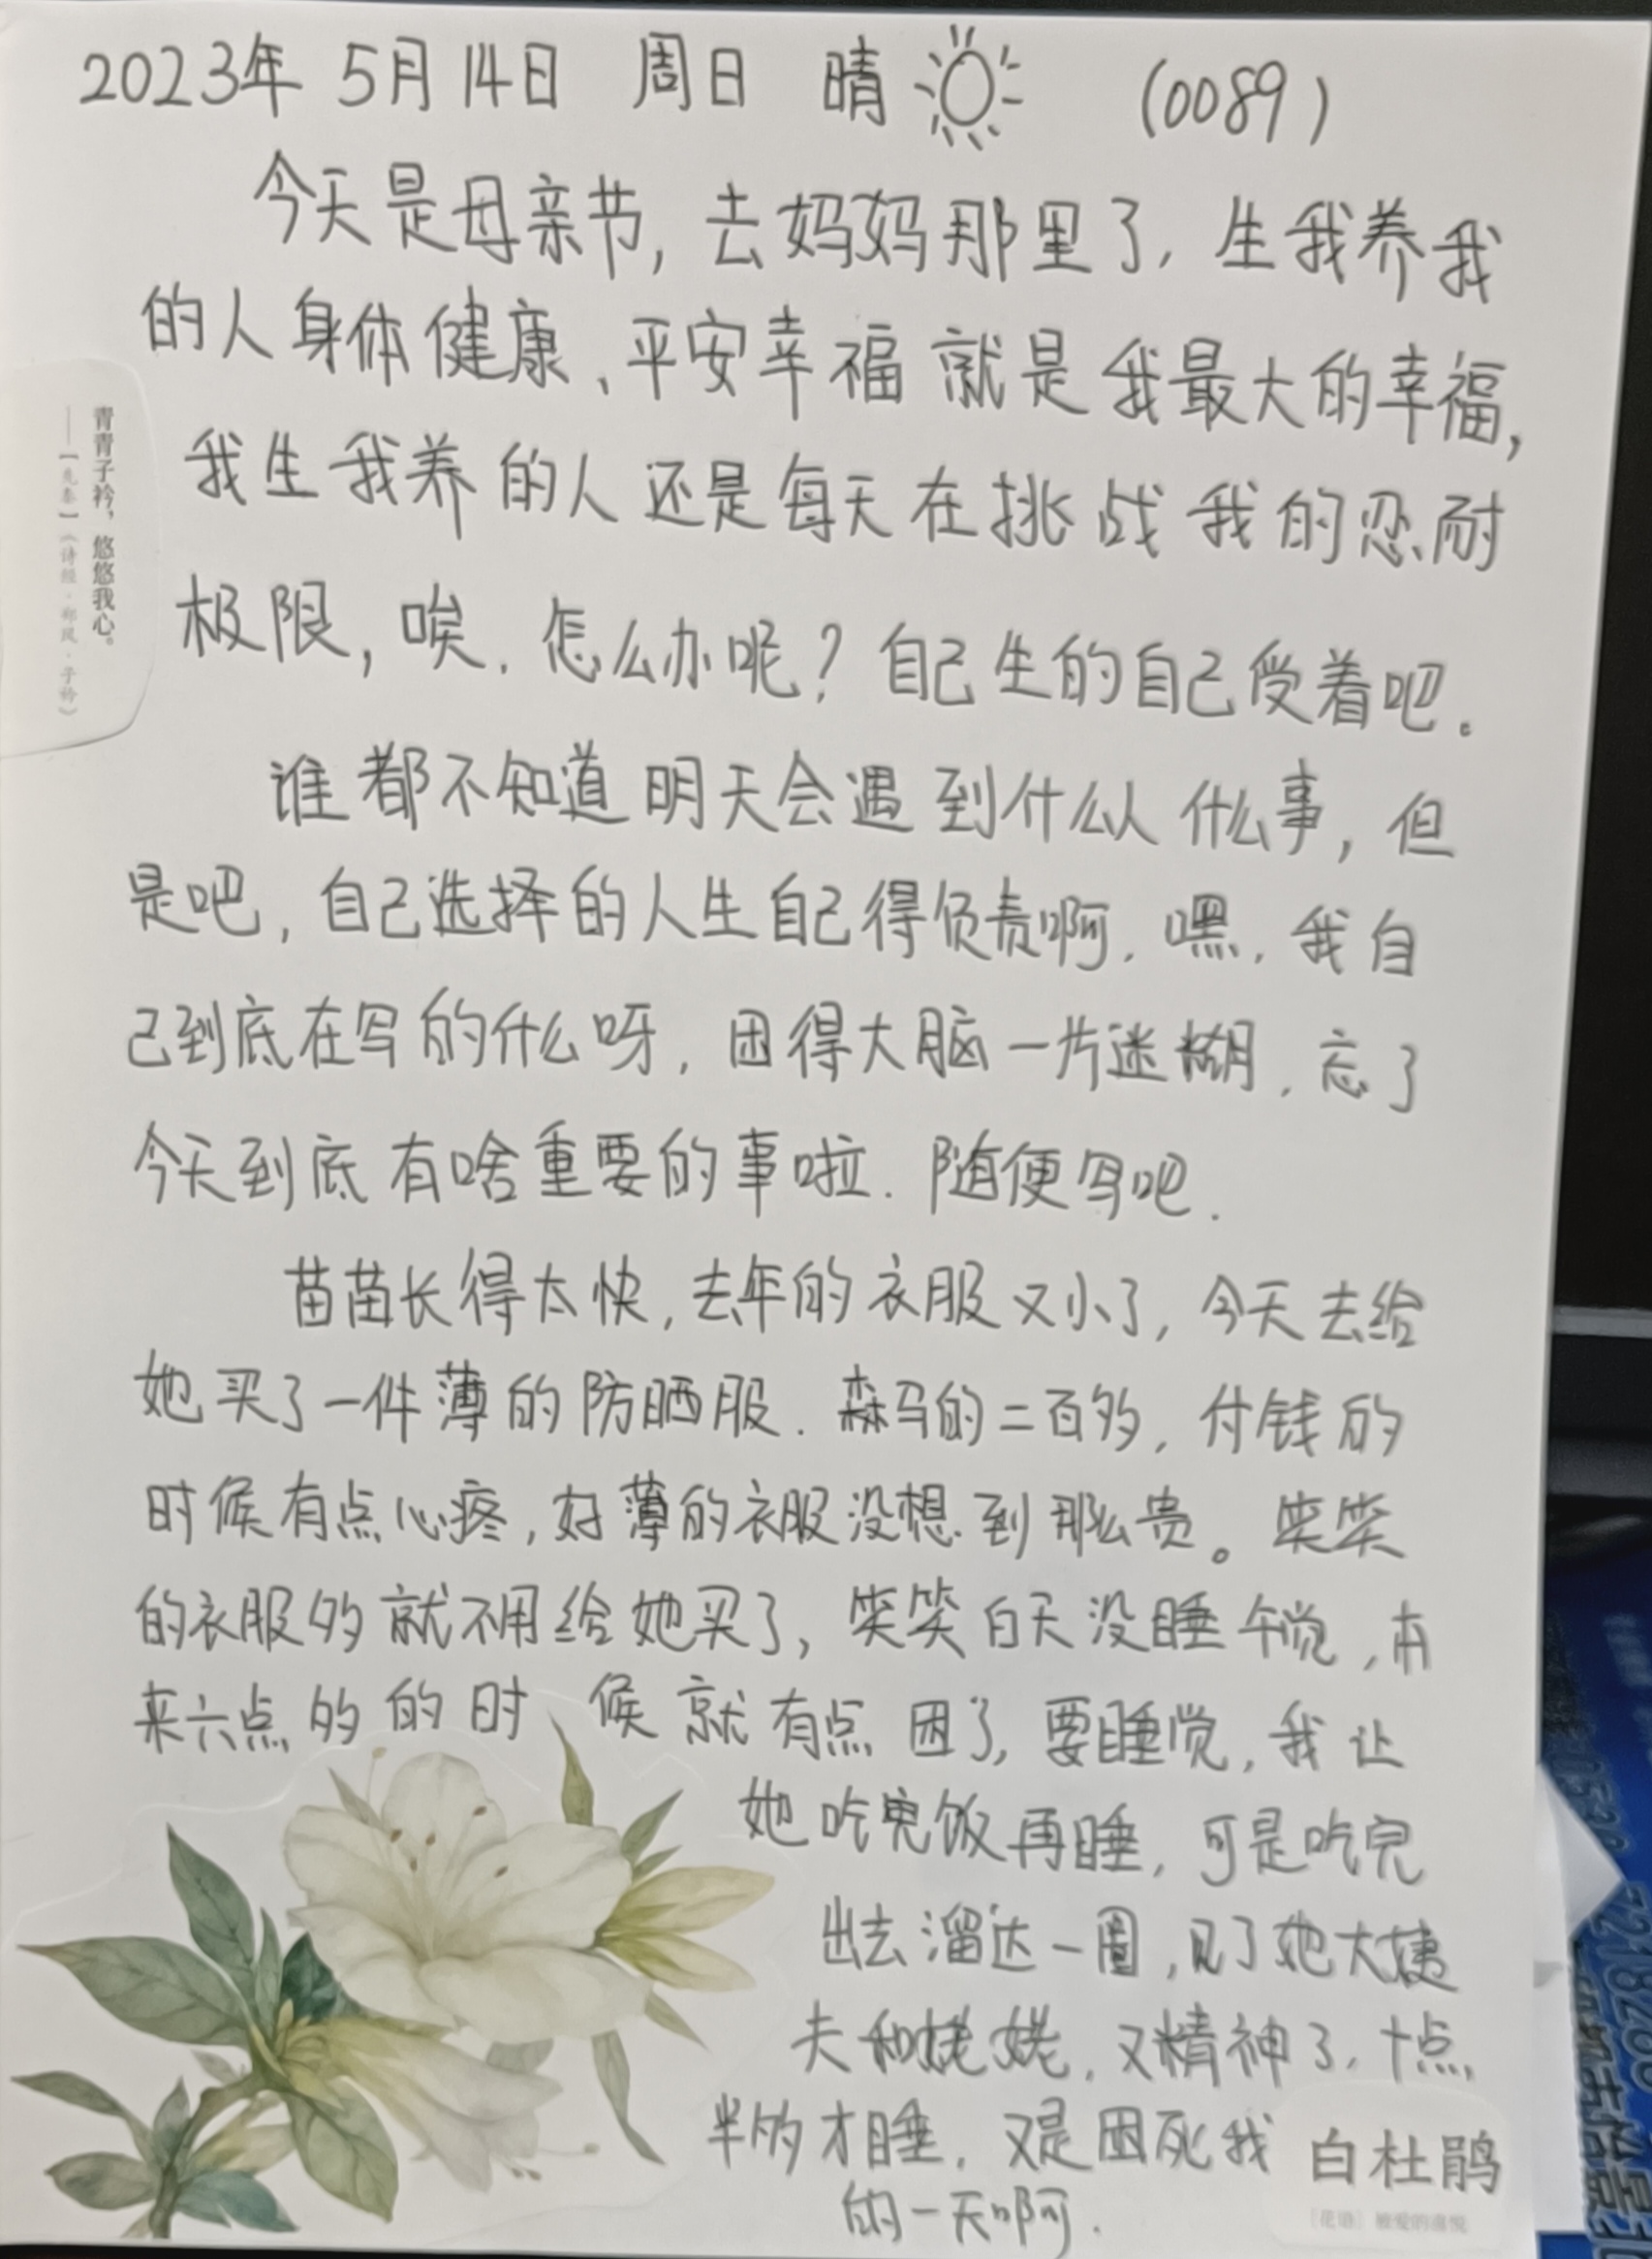 2023年 5月14日 周日 晴 (0089)
今天是母亲节,去妈妈那里了,生我养我
的人身体健康、平安幸福就是我最大的幸福,
我生我养的人还是每天在挑战我的忍耐
极限,唉.怎么办呢?自己生的自己受着吧。
谁都不知道明天会遇到什么人什么事,但
是吧,自己选择的人生自己得负责啊.嘿,我自
己到底在写的什么呀,困得大脑一片迷糊,忘了
今天到底有啥重要的事啦.随便写吧.
苗苗长得太快,去年的衣服又小了,今天去给
她买了一件薄的防晒服.森马的二百多,付钱的
时候有点心疼,好薄的衣服没想到那么贵。笑笑
的衣服多就不用给她买了,笑笑白天没睡午觉,本
来六点多的时候就有点困了,要睡觉,我让
她吃完饭再睡,可是吃完
出去溜达一圈,见了她大姨
夫和姥姥,又精神了.十点
半多才睡.又是困死我
的一天啊.
青青子衿,悠悠我心。
——【先秦】《诗经·郑风·子衿》
白杜鹃
[花语]